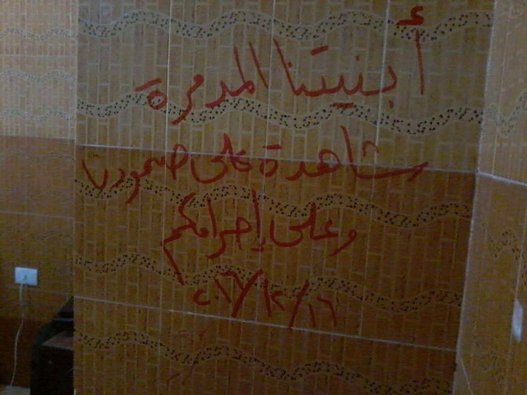 أبنيتنا المدمرة
شاهدة على صمودنا
وعلى إجرامكم
٢٠١٦/١٢/١٦